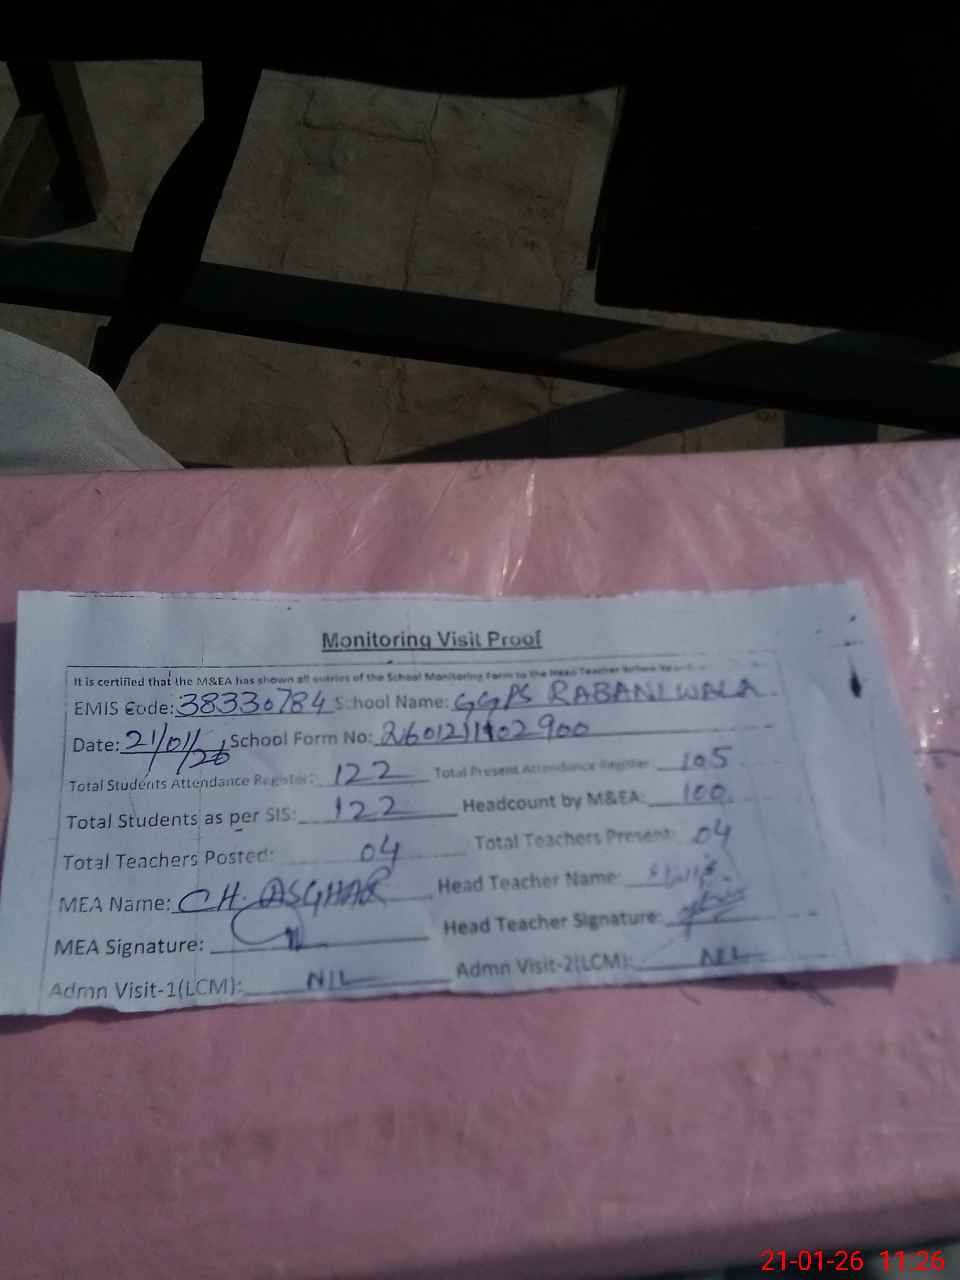 Monitoring Visit Proof
It is certified that the M&EA has shown all entries of the School Monitoring Form to the Head Teacher before
EMIS Code: 38330784 School Name: GGPS RABANIWALA
Date: 21/01/26 School Form No: 2601211102900
Total Students Attendance Register: 122 Total Present Attendance Register 105
Total Students as per SIS: 122 Headcount by M&EA: 100
Total Teachers Posted: 04 Total Teachers Present: 04
MEA Name: CH. ASGHAR Head Teacher Name:
MEA Signature: Head Teacher Signature:
Admn Visit-1(LCM): NIL Admn Visit-2(LCM): NIL
21-01-26 11:26